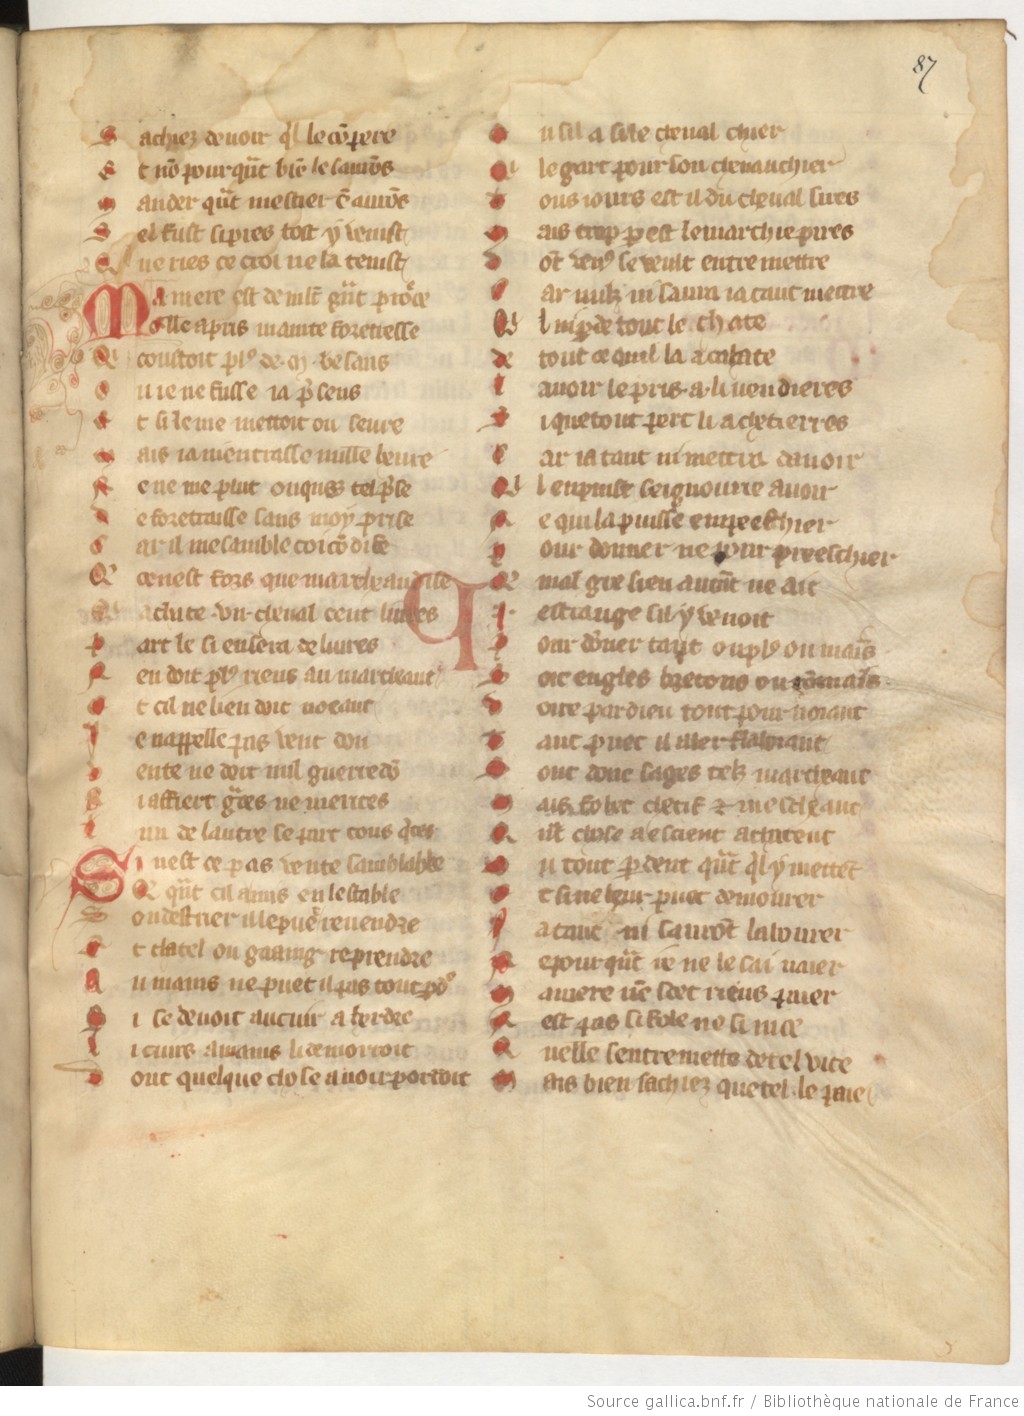 87
S achiez de voir q'l le cõpere
E t nõ pourqũt biẽ le sauõs
M ander qũt mestier ẽ auõs
S el fust si pres tost y venist
Q ue ries ce croi ne la tenist
Ma mere est de mlt' g̃nt proèce
Molle a pris mainte forteresse
Q coustoit pl' de .m. besans
O u ie ne fusse ia p̃sens
E t si le me mettoit on seure
M ais ia mentrasse nulle heure
N e ne me plut onques tel p̃se
I e foretraisse sans moy prise
C ar il me samble coi cõ die
Q ce nest fors que marcheandise
Q achate .vn. cheual cent liures
P art le si en sera deliures
N en doit pl' riens au marcheant
E t cil ne lien doit noeant
I e nappelle pas vent don
V ente ne doit nul guerredõ
N i affiert grãces ne merites
L un de lautre se part tous q̃tes
Si nest ce pas vente samblable
Q qũt cil a mis en lestable
S on destrier il le puet reuendre
E t chatel ou gaaing reprendre
A u mains ne puet il pas tout p̃dr̃
S i se deuoit au cuir aherdre
L i cuirs a mains li demorroit
D ont quelque chose auoir porroit
O u sil a si le cheual chier
Q le gart pour son cheuauchier
T ous iours est il du cheual sires
M ais trop par est le marchie pires
D õt ven' se veult entremettre
C ar nulz ni saura ia tant mettre
Q l ni p̃de tout le chate
Et tout ce quil la achate
L auoir le pris .a. li uendieres
S i que tout pert li achetierres
C ar ia tant ni mettra dauoir
Q l en puist seignourie auoir
N e qui la puisse empeeschier
P our donner ne pour preeschier
Q mal gre sien autãt ne ait
I estrange sil y venoit
P our dõner tant ou pl' ou mais
S oit engles bretons ou rõmais
V oire par dieu tout pour noiant
T ant puet il aler flaiolant
S ont donc sages telz marcheant
M ais fol et chetif & mescheant
Q nt chose a escient achatent
O u tout p̃dent qũt q̃l y mettẽt
E t si ne leur puet demourer
I a tant ni sauront labourer
N epourqũt ie ne le sai naier
M a mere nẽ seult riens paier
N est pas si fole ne si nice
Q uelle sentremette de tel vice
M ais bien sachiez que tel le paie
Source gallica.bnf.fr / Bibliothèque nationale de France